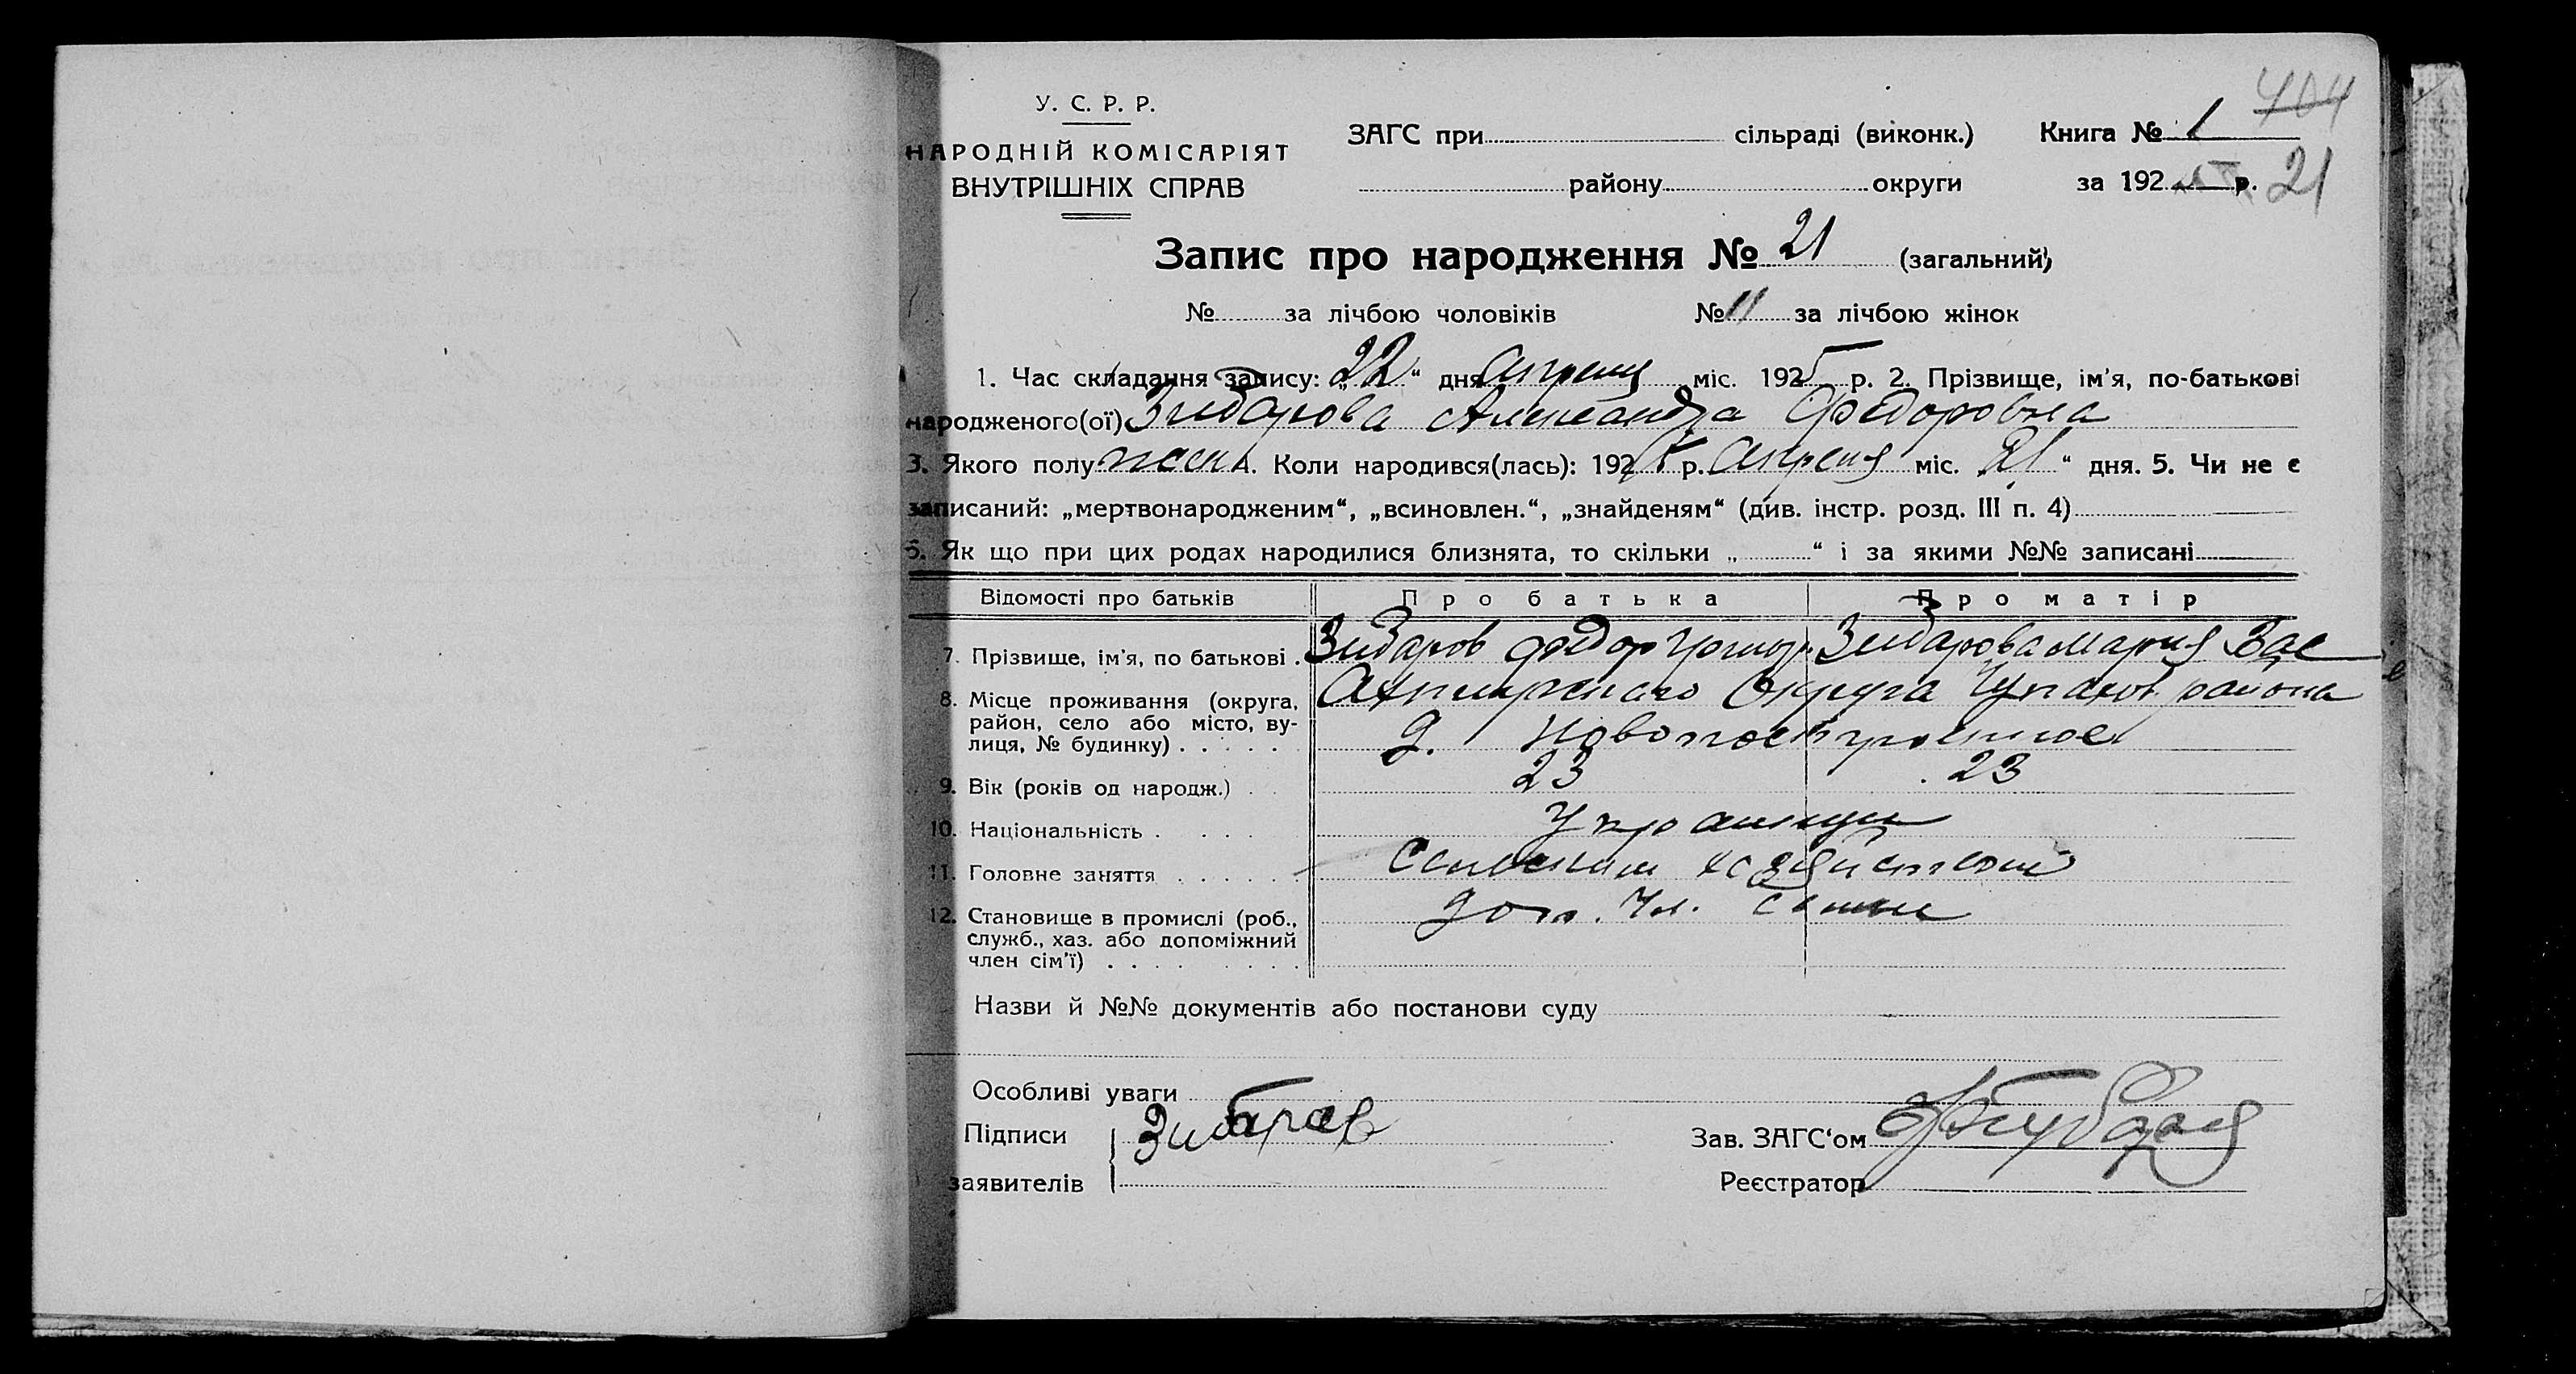 404
У. С. Р. Р.
НАРОДНІЙ КОМІСАРІЯТ
ВНУТРІШНІХ СПРАВ
ЗАГС при сільраді (виконк.) Книга № 1
району округи за 192 р. 21
Запис про народження № 21 (загальний)
№ за лічбою чоловіків № 11 за лічбою жінок
1. Час складання запису: „22“ дня апреля міс. 1925 р. 2. Прізвище, ім'я, по-батькові
народженого(ої) Зибарова Александра Федоровна
3. Якого полу жен 4. Коли народився(лась): 1925 р. апреля міс. „21“ дня. 5. Чи не є
записаний: „мертвонародженим“, „всиновлен.“, „знайденям“ (див. інстр. розд. III п. 4)
6. Як що при цих родах народилися близнята, то скільки „ “ і за якими №№ записані
Відомості про батьків Про батька Про матір
7. Прізвище, ім'я, по батькові . Зибаров Федор Григор. Зибарова Мария Вас
8. Місце проживання (округа, район, село або місто, вулиця, № будинку) . . . . . Округа района
д. Новопостроенное
9. Вік (років од народж.) . . 23 23
10. Національність . . . . Украинцы
11. Головне заняття . . . . . . Сельским хозяйством
12. Становище в промислі (роб., служб., хаз. або допоміжний член сім'ї) . . . . . . . . доп. чл. семьи
Назви й №№ документів або постанови суду
Особливі уваги
Підписи Зибаров Зав. ЗАГС‘ом
заявителів Реєстратор